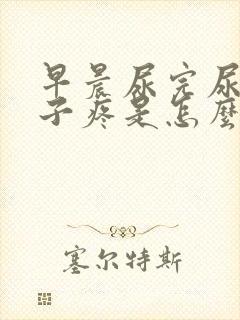 早晨尿完尿
子疼是怎麼
塞尔特斯